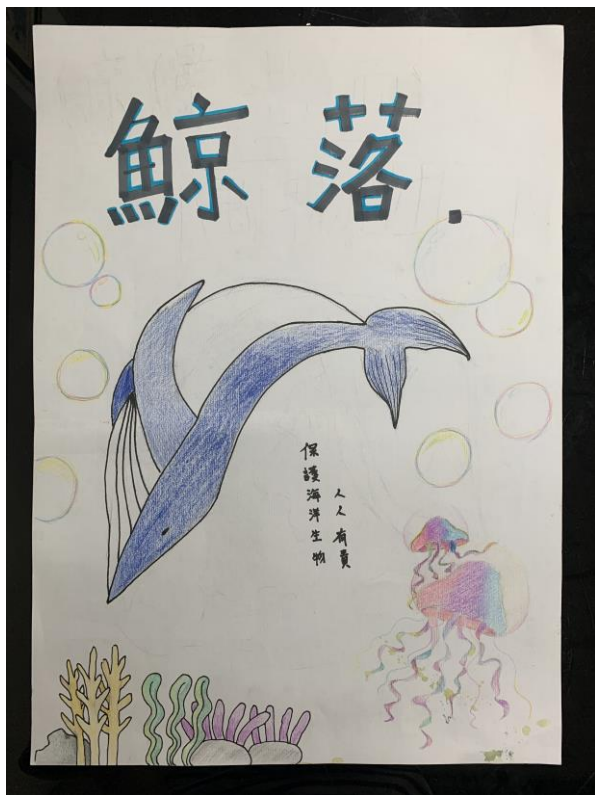 鯨落
保護海洋生物
人人有責